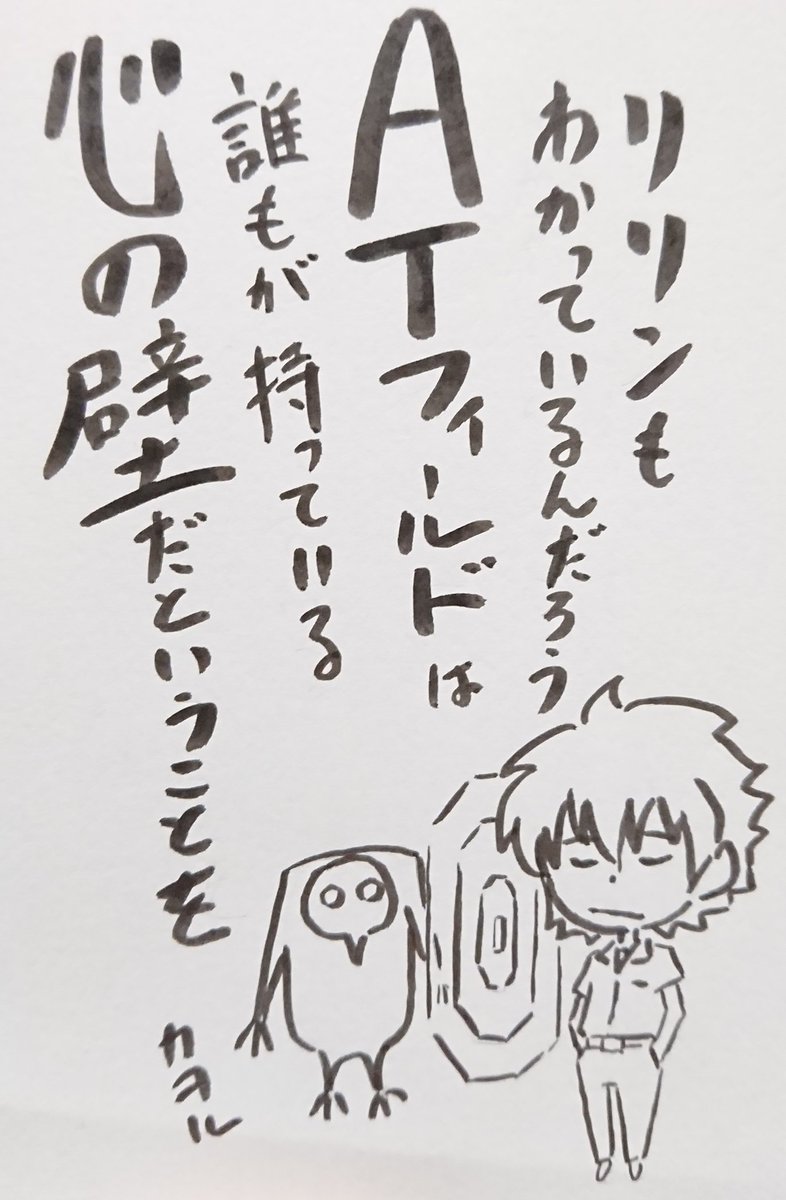 リリンも
わかっているんだろう
ATフィールドは
誰もが持っている
心の壁だということを
カヲル